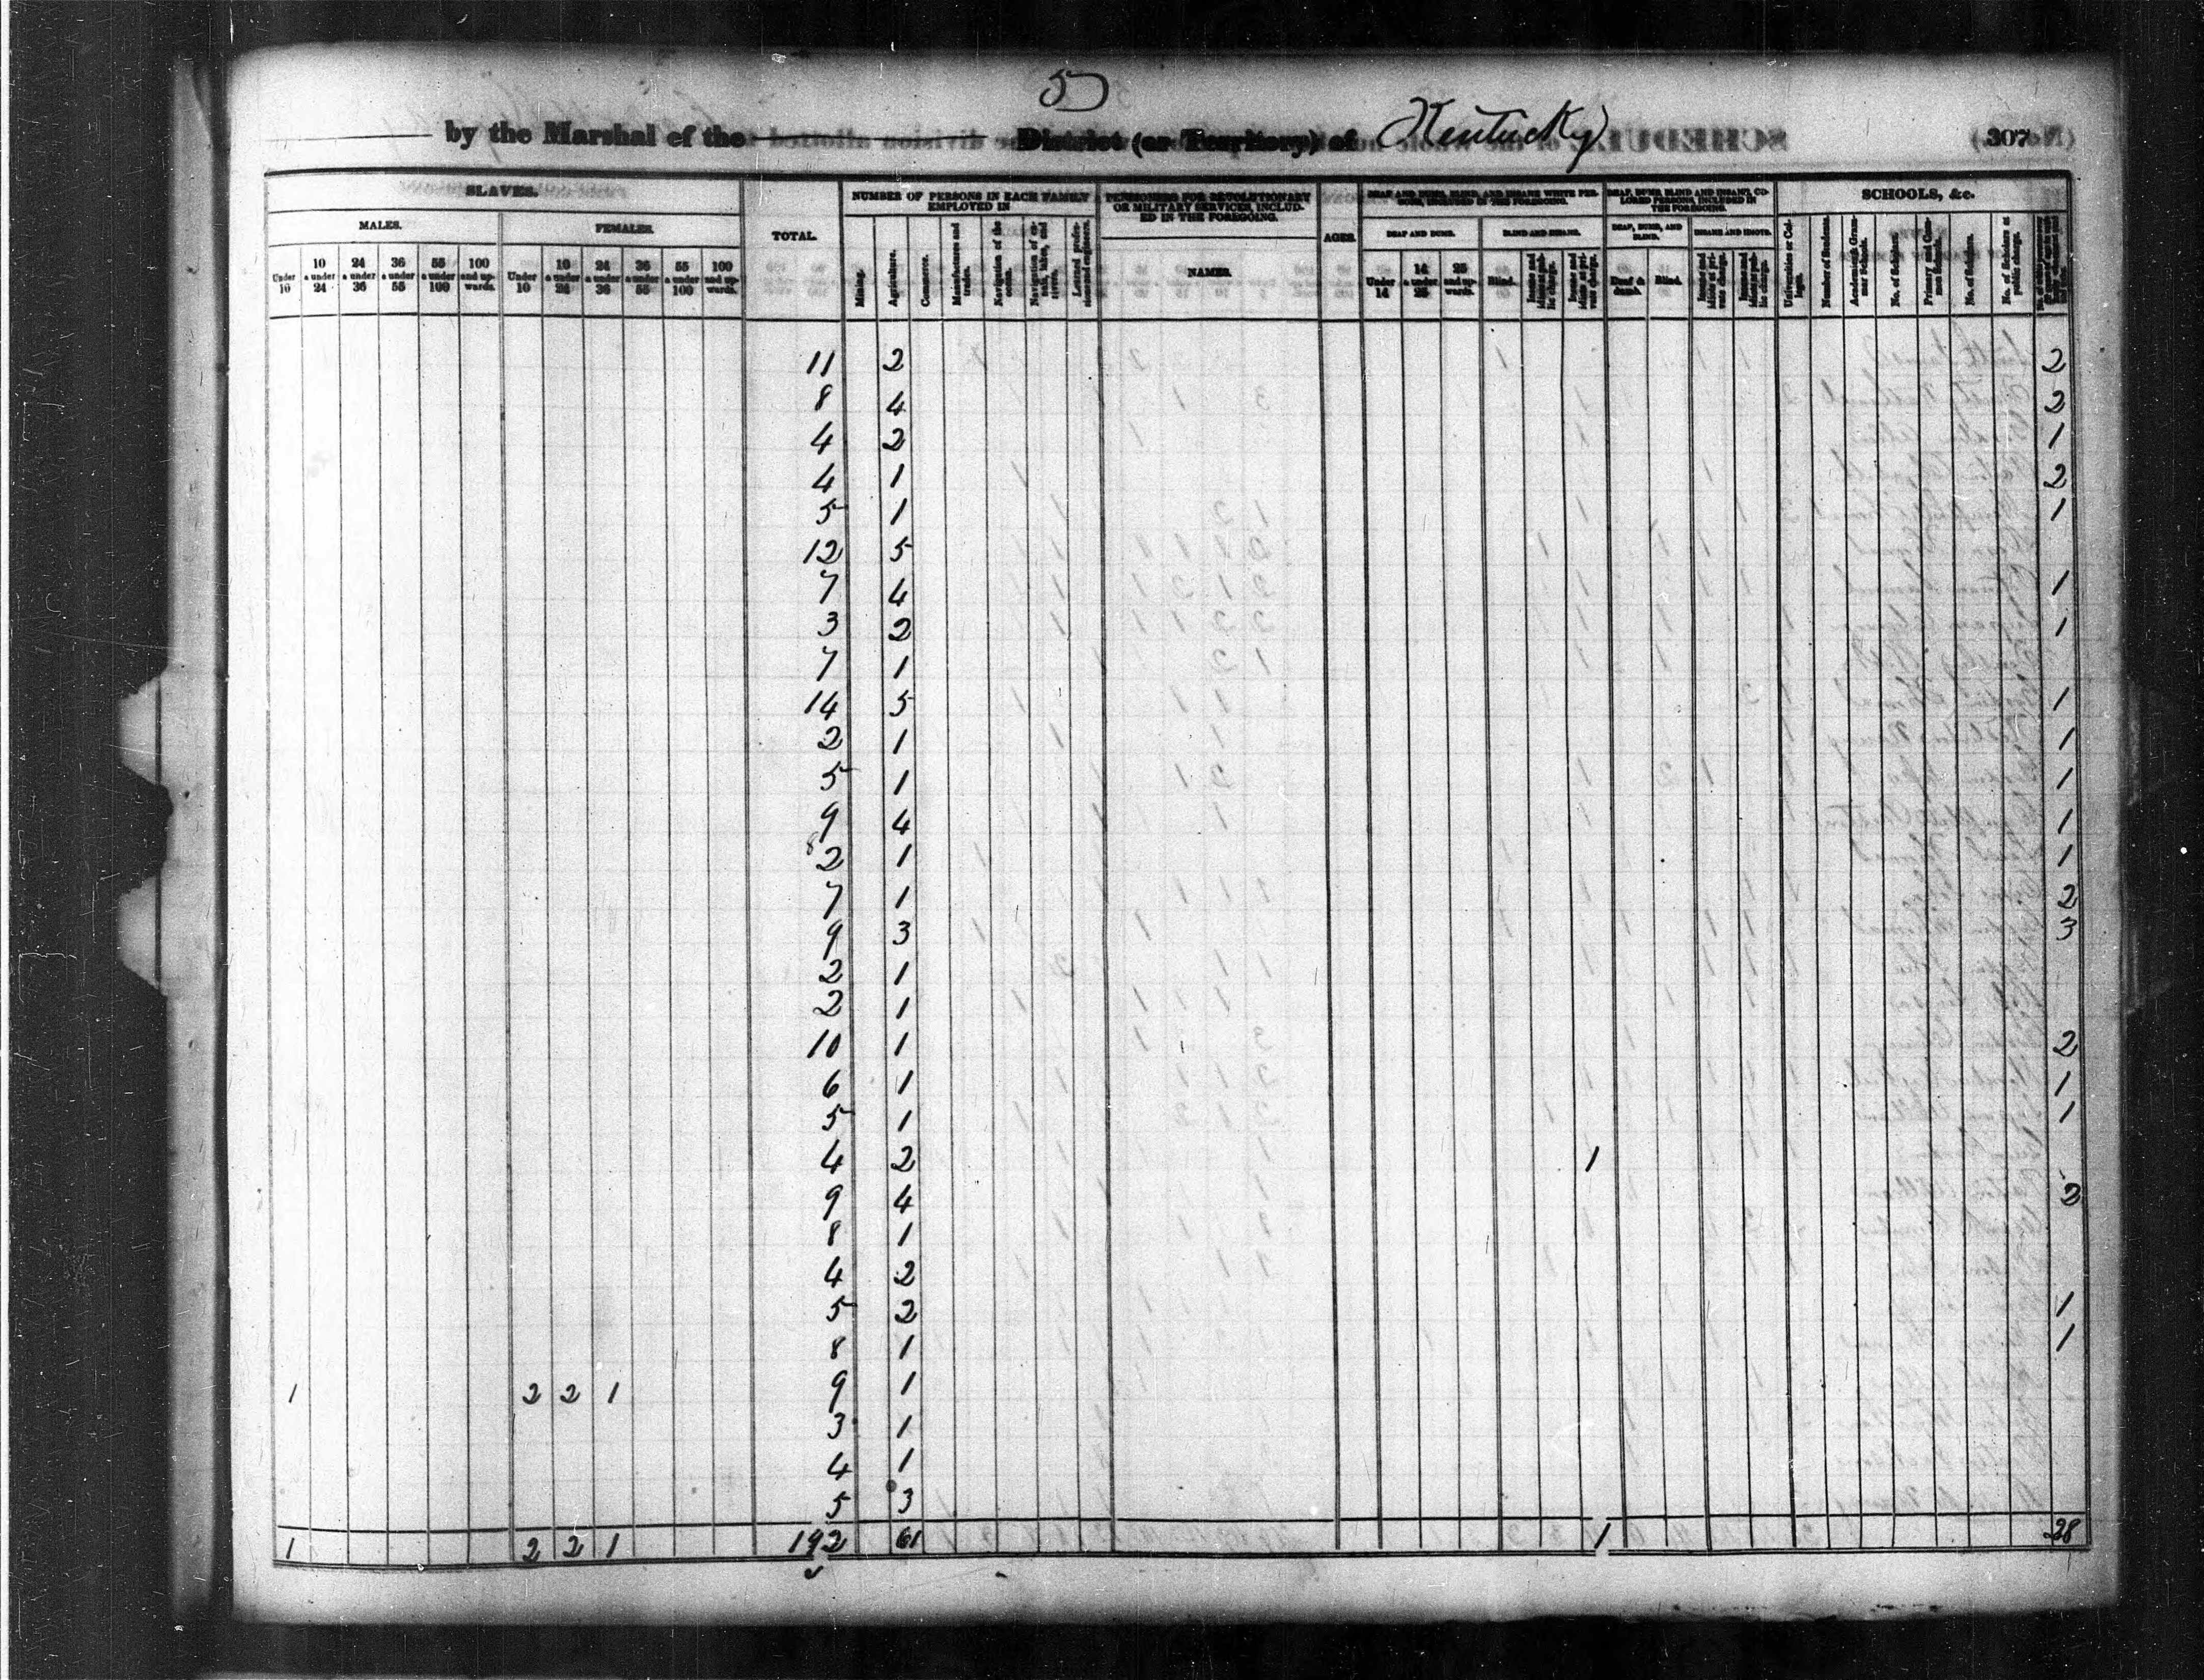 5
by the Marshal of the District (or Territory) of Kentucky 307
SLAVES. TOTAL. NUMBER OF PERSONS IN EACH FAMILY EMPLOYED IN PENSIONERS FOR REVOLUTIONARY OR MILITARY SERVICES, INCLUDED IN THE FOREGOING. AGES. DEAF AND DUMB, BLIND, AND INSANE WHITE PERSONS, INCLUDED IN THE FOREGOING. DEAF, DUMB, BLIND AND INSANE COLORED PERSONS, INCLUDED IN THE FOREGOING. SCHOOLS, &c.
MALES. FEMALES. NAMES. DEAF AND DUMB. BLIND AND INSANE. DEAF, DUMB, AND BLIND. INSANE AND IDIOTS.
Under 10 10 & under 24 24 & under 36 36 & under 55 55 & under 100 100 and upwards. Under 10 10 & under 24 24 & under 36 36 & under 55 55 & under 100 100 and upwards. Mining. Agriculture. Commerce. Manufactures and trades. Navigation of the ocean. Navigation of canals, lakes, and rivers. Learned professions and engineers. Under 14 14 & under 25 25 and upwards. Blind. Insane and idiots at public charge. Insane and idiots at private charge. Deaf & dumb. Blind. Insane and idiots at private charge. Insane and idiots at public charge. Universities or College. Number of Students. Academies & Grammar Schools. No. of Scholars. Primary and Common Schools. No. of Scholars. No. of Scholars at public charge.
11 2 2
8 4 2
4 2 1
4 1 2
5 1 1
12 5
7 4 1
3 2 1
7 1
14 5 1
2 1 1
5 1 1
9 4 1
2 1 1
7 1 2
9 3 3
2 1
2 1
10 1 2
6 1 1
5 1 1
4 2 1
9 4 2
8 1
4 2
5 2 1
8 1 1
1 2 2 1 9 1
3 1
4 1
5 3
1 2 2 1 192 61 1 28